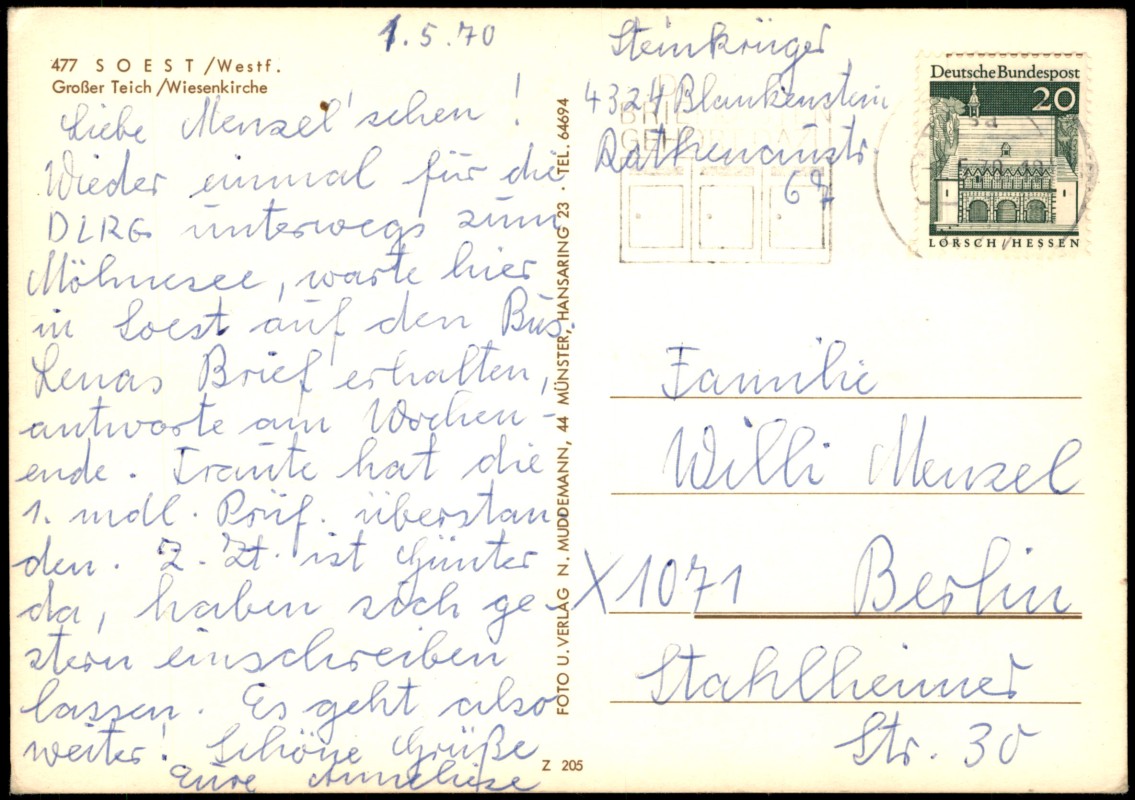 1.5.70
477 SOEST/Westf.
Großer Teich/Wiesenkirche
Liebe Menzel'schen!
Wieder einmal für die
DLRG unterwegs zum
Möhnesee, warte hier
in Soest auf den Bus.
Lenas Brief erhalten,
antworte am Wochen-
ende. Traute hat die
1. mdl. Prüf. überstan
den. Z. Zt. ist Günter
da, haben sich ge-
stern einschreiben
lassen. Es geht also
weiter! Schöne Grüße
Eure Anneliese
FOTO U. VERLAG N. MUDDEMANN, 44 MÜNSTER, HANSARING 23 · TEL. 64694
Z 205
Steinkrüger
4324 Blankenstein
Rathenaustr
69
Deutsche Bundespost
20
LORSCH/HESSEN
Familie
Willi Menzel
X1071 Berlin
Stahlheimer
Str. 30